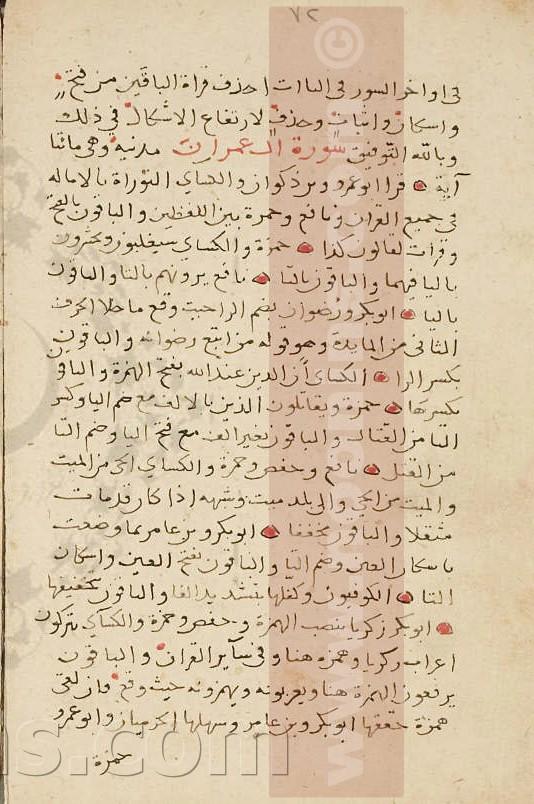 ٧٢
فى اواخر السور فى الياات احذف قراة الباقين من فتح
واسكان واثبات وحذف لارتفاع الاشكال فى ذلك
وبالله التوفيق سورة ال عمران مدنية وهى مائتا
آية قرا ابو عمرو وبن ذكوان والكساى التوراة بالاماله
فى جميع القران ونافع وحمزة بين اللفظين والباقون بالفتح
وقرات لقالون كذا حمزة والكساى سيغلبون ويحشرون
باليا فيهما والباقون بالتا نافع يرونهم بالتا والباقون
باليا ابو بكر ورضوان بضم الرا حيث وقع ما خلا الحرف
الثانى من المايدة وهو قوله من اتبع رضوانه والباقون
بكسر الرا الكساى أن الدين عند الله بفتح الهمزة والباقى
بكسرها حمزة ويقاتلون الذين بالالف مع ضم اليا وكسر
التا من القتال والباقون بغير الف مع فتح اليا وضم التا
من القتل نافع وحفص وحمزة والكساى الحى من الميت
والميت من الحى والى بلد ميت وشبهه اذا كان قد مات
مثقلا والباقون مخففا ابو بكر وبن عامر بما وضعت
باسكان العين وضم التا والباقون بفتح العين واسكان
التا الكوفيون وكفلها بتشديد الفا والباقون بتخفيفها
ابو بكر زكريا بنصب الهمزة وحفص وحمزة والكساى يتركون
اعراب زكريا وهمزه هنا وفى سآير القران والباقون
يرفعون الهمزة هنا ويعربونه ويهمزونه حيث وقع فان لقى
همزة حققها ابو بكر وبن عامر وسهلها الحرميان وابو عمرو
حمزة
www.
s.com
©